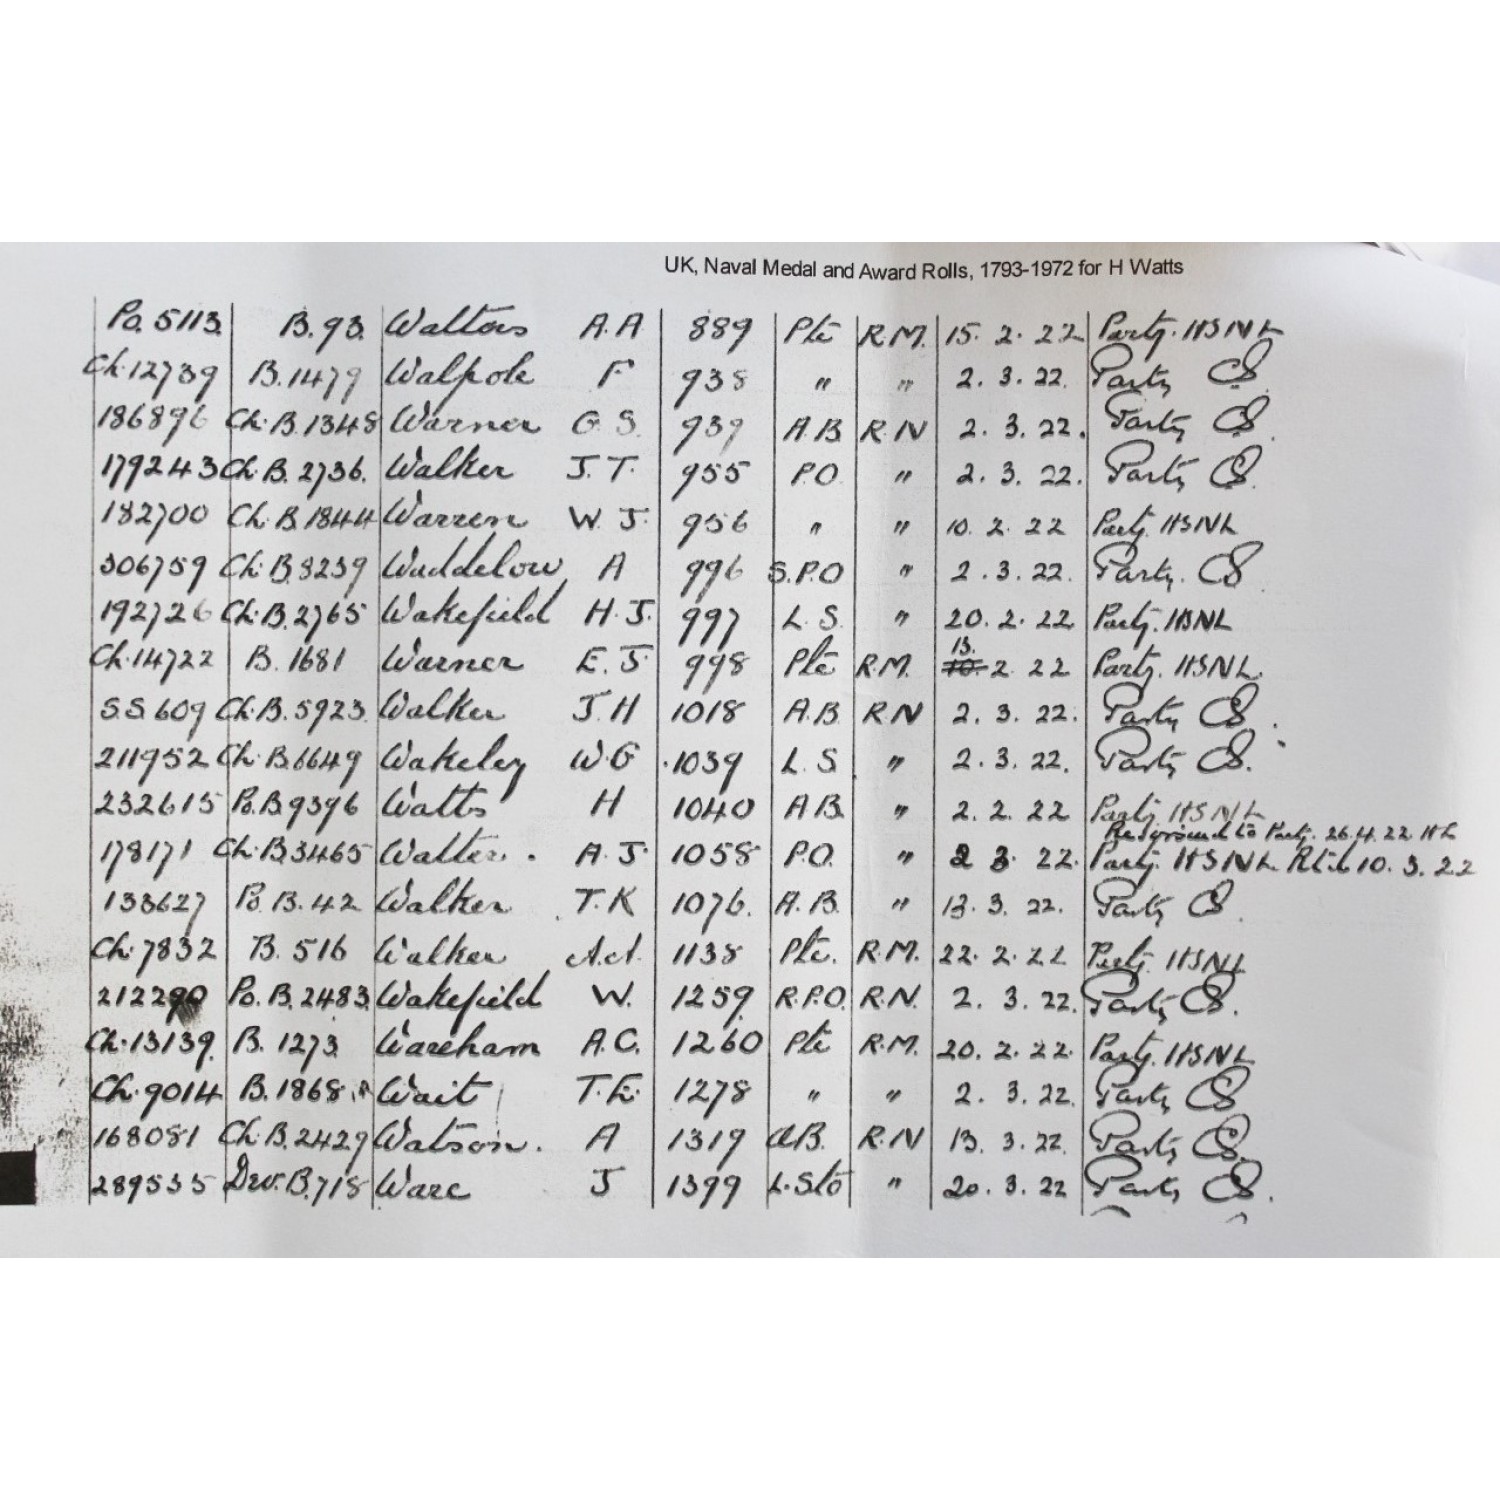 UK, Naval Medal and Award Rolls, 1793-1972 for H Watts
Po. 5113 B. 93. Walton A.A 889 Pte R.M. 15. 2. 22 Party. HSNL
Ch. 12739 B. 1479 Walpole F 938 " " 2. 3. 22. Party CS.
186896 Ch. B. 1348 Warner G. S. 939 A.B R.N 2. 3. 22. Party CS.
179243 Ch. B. 2736. Walker J. T. 955 P.O. " 2. 3. 22. Party CS.
182700 Ch. B. 1844 Warren W. J. 956 " " 10. 2. 22 Party. HSNL
306759 Ch. B. 8239 Waddelow A 996 S.P.O " 2. 3. 22. Party. CS
192726 Ch. B. 2765 Wakefield H. J. 997 L. S. " 20. 2. 22 Party. HSNL
13.
Ch. 14722 B. 1681 Warner E. J. 998 Pte R.M. 10. 2. 22 Party. HSNL.
S.S 609 Ch. B. 5923. Walker J. H 1018 A.B. R.N 2. 3. 22. Party CS.
211952 Ch. B. 6649 Wakeley W. G 1039 L. S. " 2. 3. 22. Party CS.
232615 Po. B 9396 Watts H 1040 A B. " 2. 2. 22 Party. HSNL
to Party. 26. 4. 22
178171 Ch. B 3465 Walter. A. J. 1058 P.O. " 2 3. 22. Party. HSNL 10. 3. 22
133627 Po. B. 42 Walker T. K 1076. A. B. " 13. 3. 22. Party CS.
Ch. 7832 B. 516 Walker A.A. 1138 Pte. R.M. 22. 2. 22 Party. HSNL
212290 Po. B. 2483. Wakefield W. 1259 R.P.O. R.N. 2. 3. 22. Party CS.
Ch. 13139. B. 1273 Wareham A.C. 1260 Pte R.M. 20. 2. 22. Party. HSNL
Ch. 9014 B. 1868. Wait T. E. 1278 " " 2. 3. 22. Party CS
168081 Ch. B. 2429 Watson. A 1319 A.B. R.N 13. 3. 22. Party CS.
289535 Dev. B. 718 Ware J 1399 L. Sto " 20. 3. 22 Party CS.